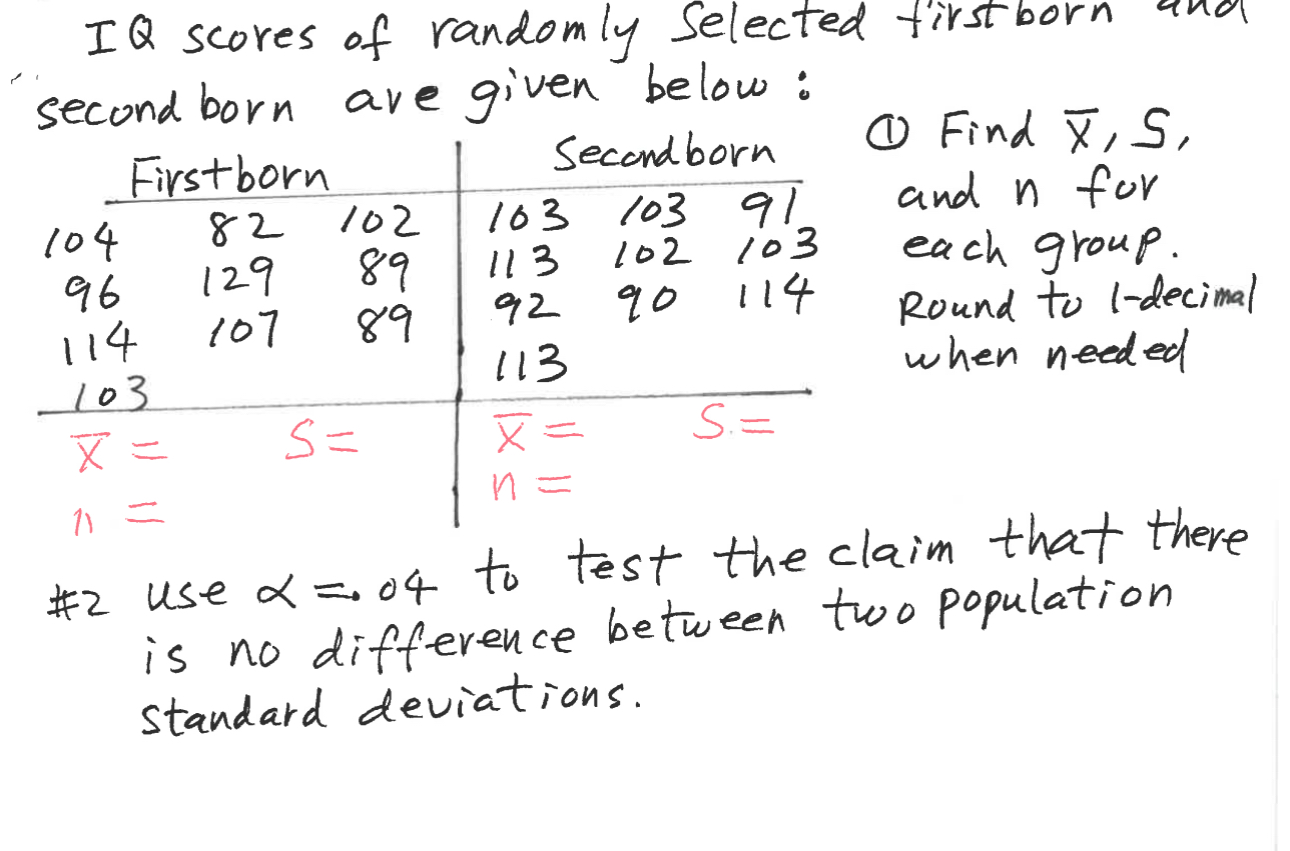 IQ scores of randomly Selected firstborn and
second born are given below :
Firstborn
104 82 102
96 129 89
114 107 89
103
x̄ = S =
n =
Secondborn
103 103 91
113 102 103
92 90 114
113
x̄ = S. =
n =
① Find x̄, S,
and n for
each group.
Round to 1-decimal
when needed
#2 use α = .04 to test the claim that there
is no difference between two population
standard deviations.